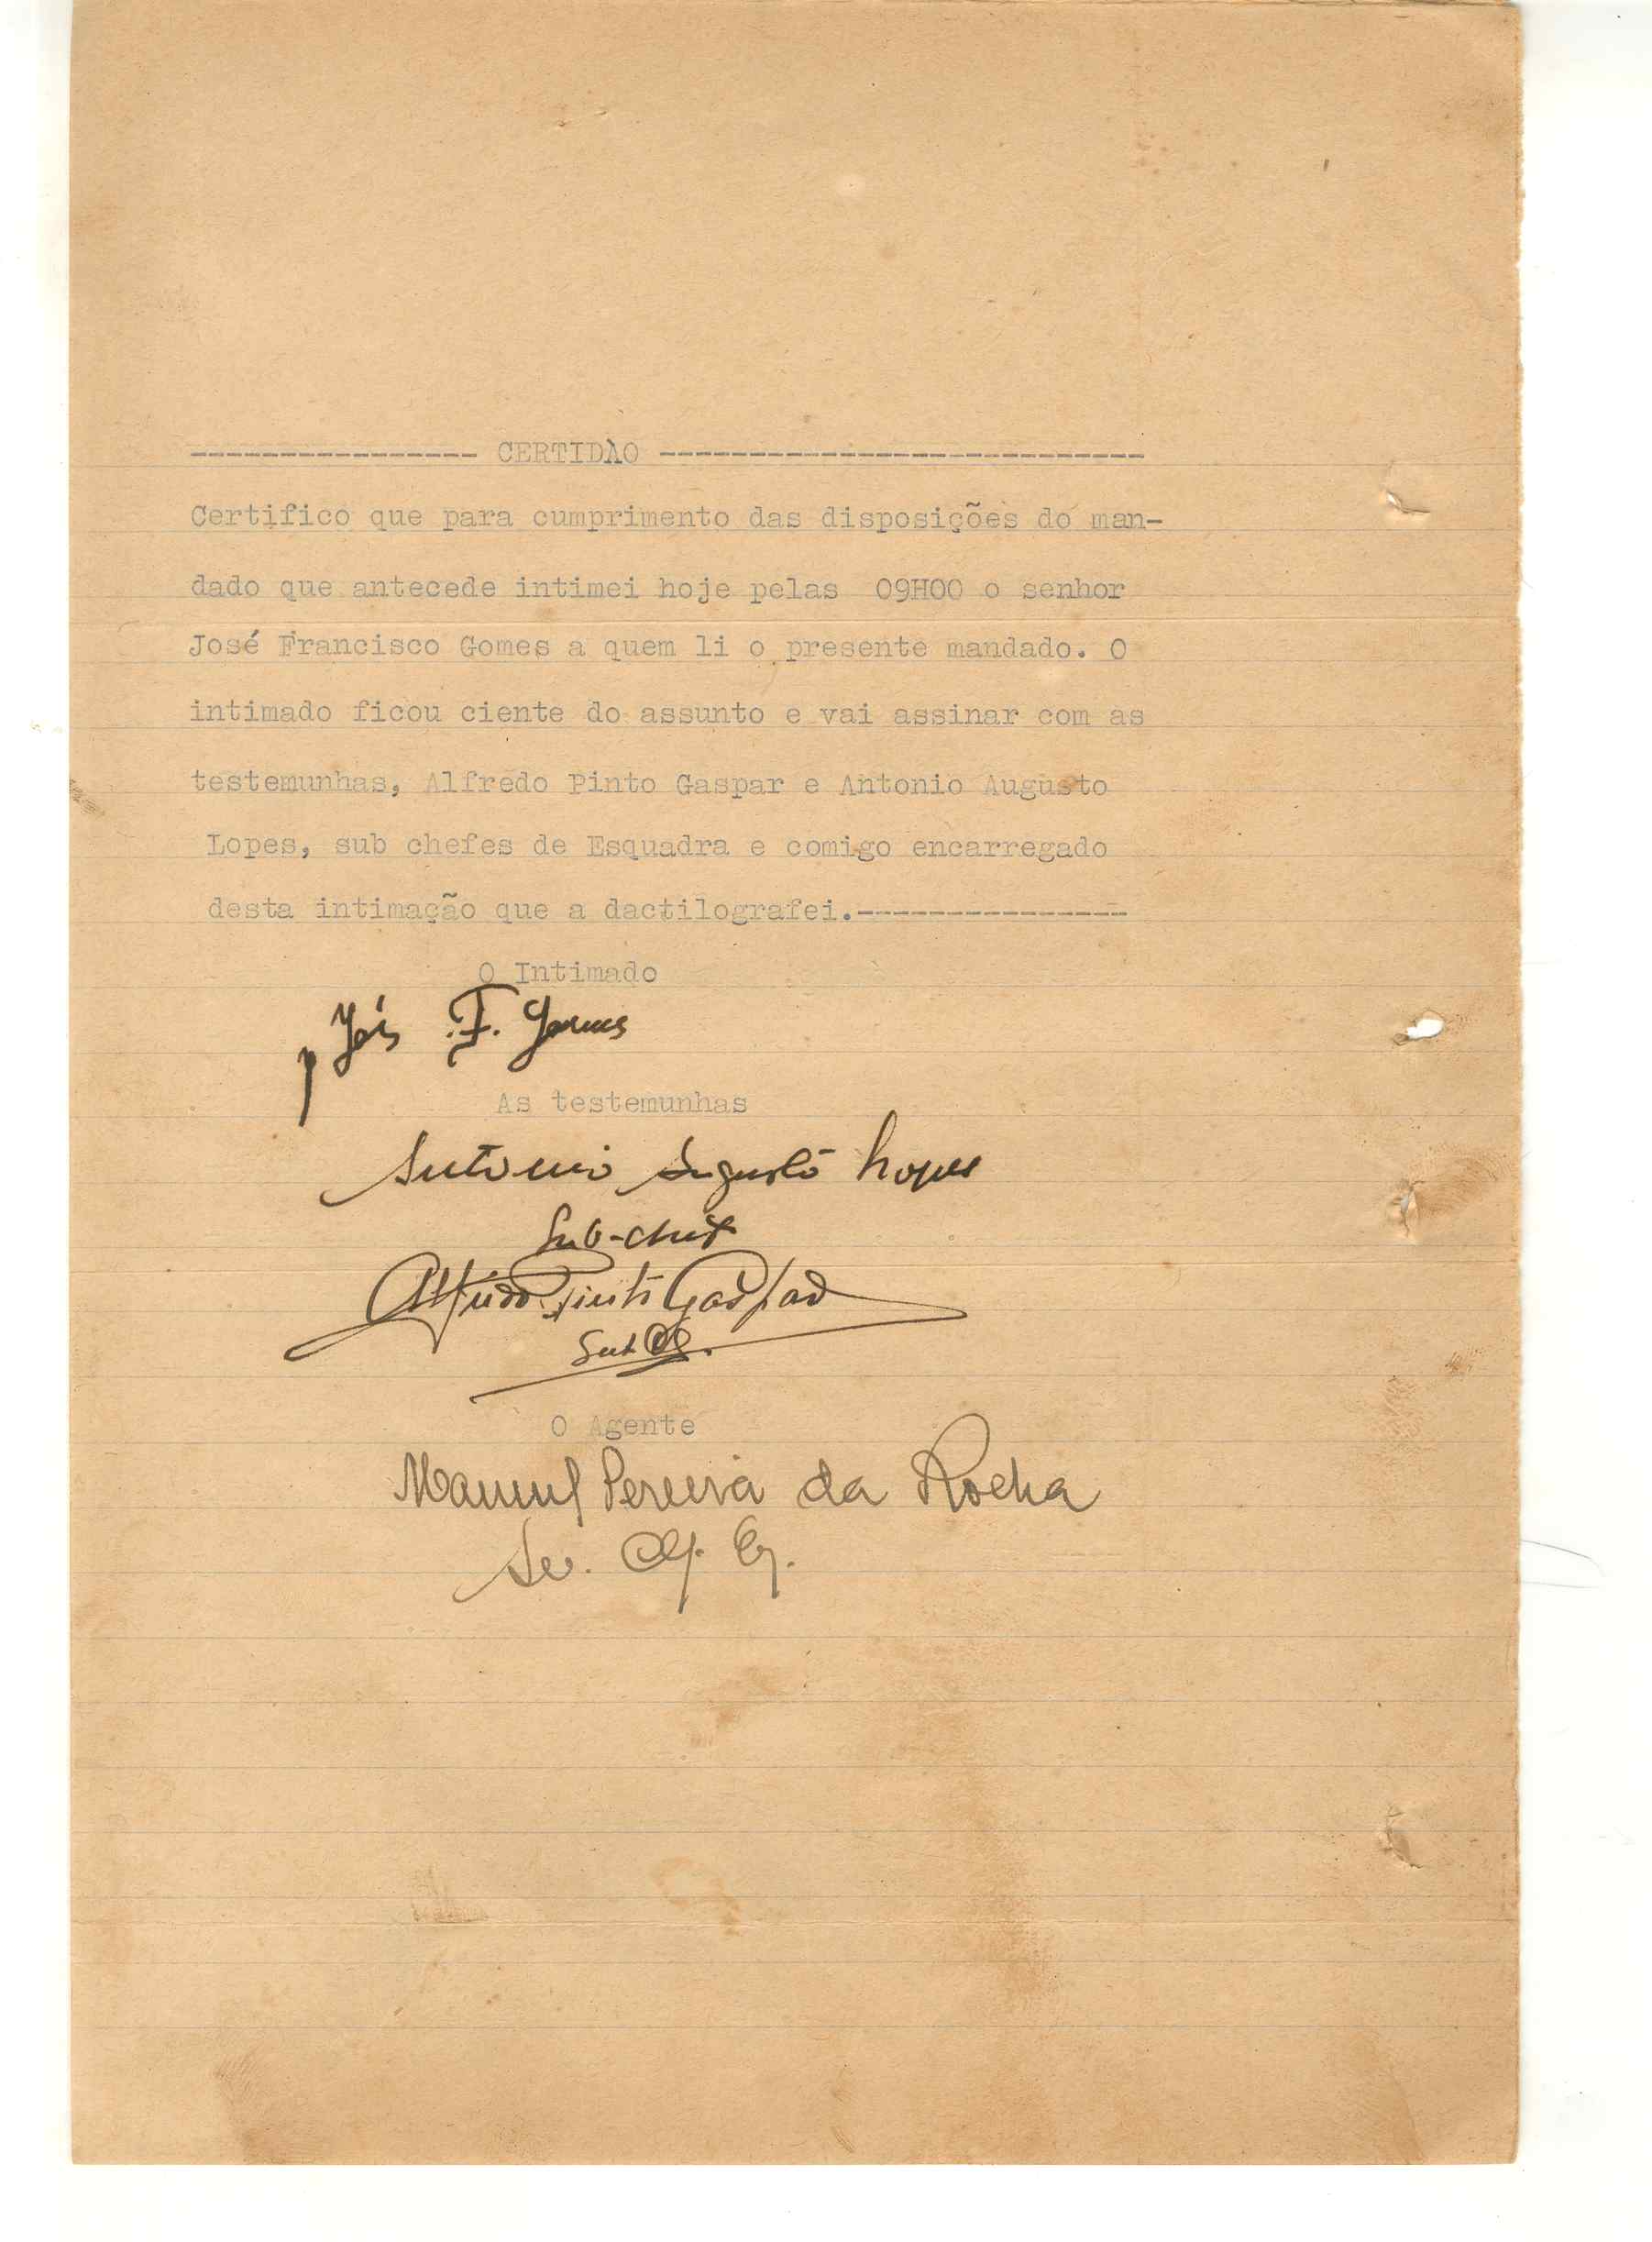 ---------------- CERTIDÃO ---------------------------
Certifico que para cumprimento das disposições do man-
dado que antecede intimei hoje pelas 09H00 o senhor
José Francisco Gomes a quem li o presente mandado. O
intimado ficou ciente do assunto e vai assinar com as
testemunhas, Alfredo Pinto Gaspar e Antonio Augusto
Lopes, sub chefes de Esquadra e comigo encarregado
desta intimação que a dactilografei.---------------
O Intimado
José F. Gomes
As testemunhas
Antonio Augusto Lopes
Sub-chefe
Alfredo Pinto Gaspar
O Agente
Manuel Pereira da Rocha